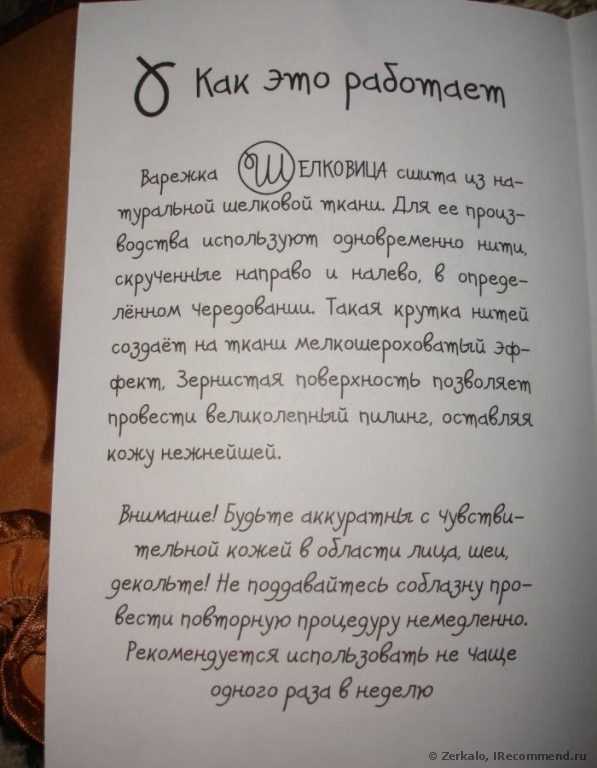 Как это работает
Варежка ШЕЛКОВИЦА сшита из на-
туральной шелковой ткани. Для ее произ-
водства используют одновременно нити,
скрученные направо и налево, в опреде-
лённом чередовании. Такая крутка нитей
создаёт на ткани мелкошероховатый эф-
фект. Зернистая поверхность позволяет
провести великолепный пилинг, оставляя
кожу нежнейшей.
Внимание! Будьте аккуратны с чувстви-
тельной кожей в области лица, шеи,
декольте! Не поддавайтесь соблазну про-
вести повторную процедуру немедленно.
Рекомендуется использовать не чаще
одного раза в неделю
© Zerkalo, IRecommend.ru